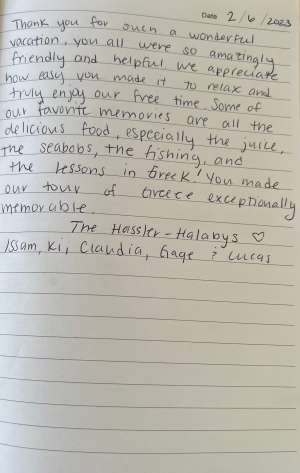 Date 2/6/2023
Thank you for such a wonderful
vacation, you all were so amazingly
friendly and helpful we appreciate
how easy you made it to relax and
truly enjoy our free time. Some of
our favorite memories are all the
delicious food, especially the juice,
the seabobs, the fishing, and
the lessons in Greek! You made
our tour of Greece exceptionally
memorable.
The Hassler-Halabys ♡
Issam, Ki, Claudia, Gage & Lucas